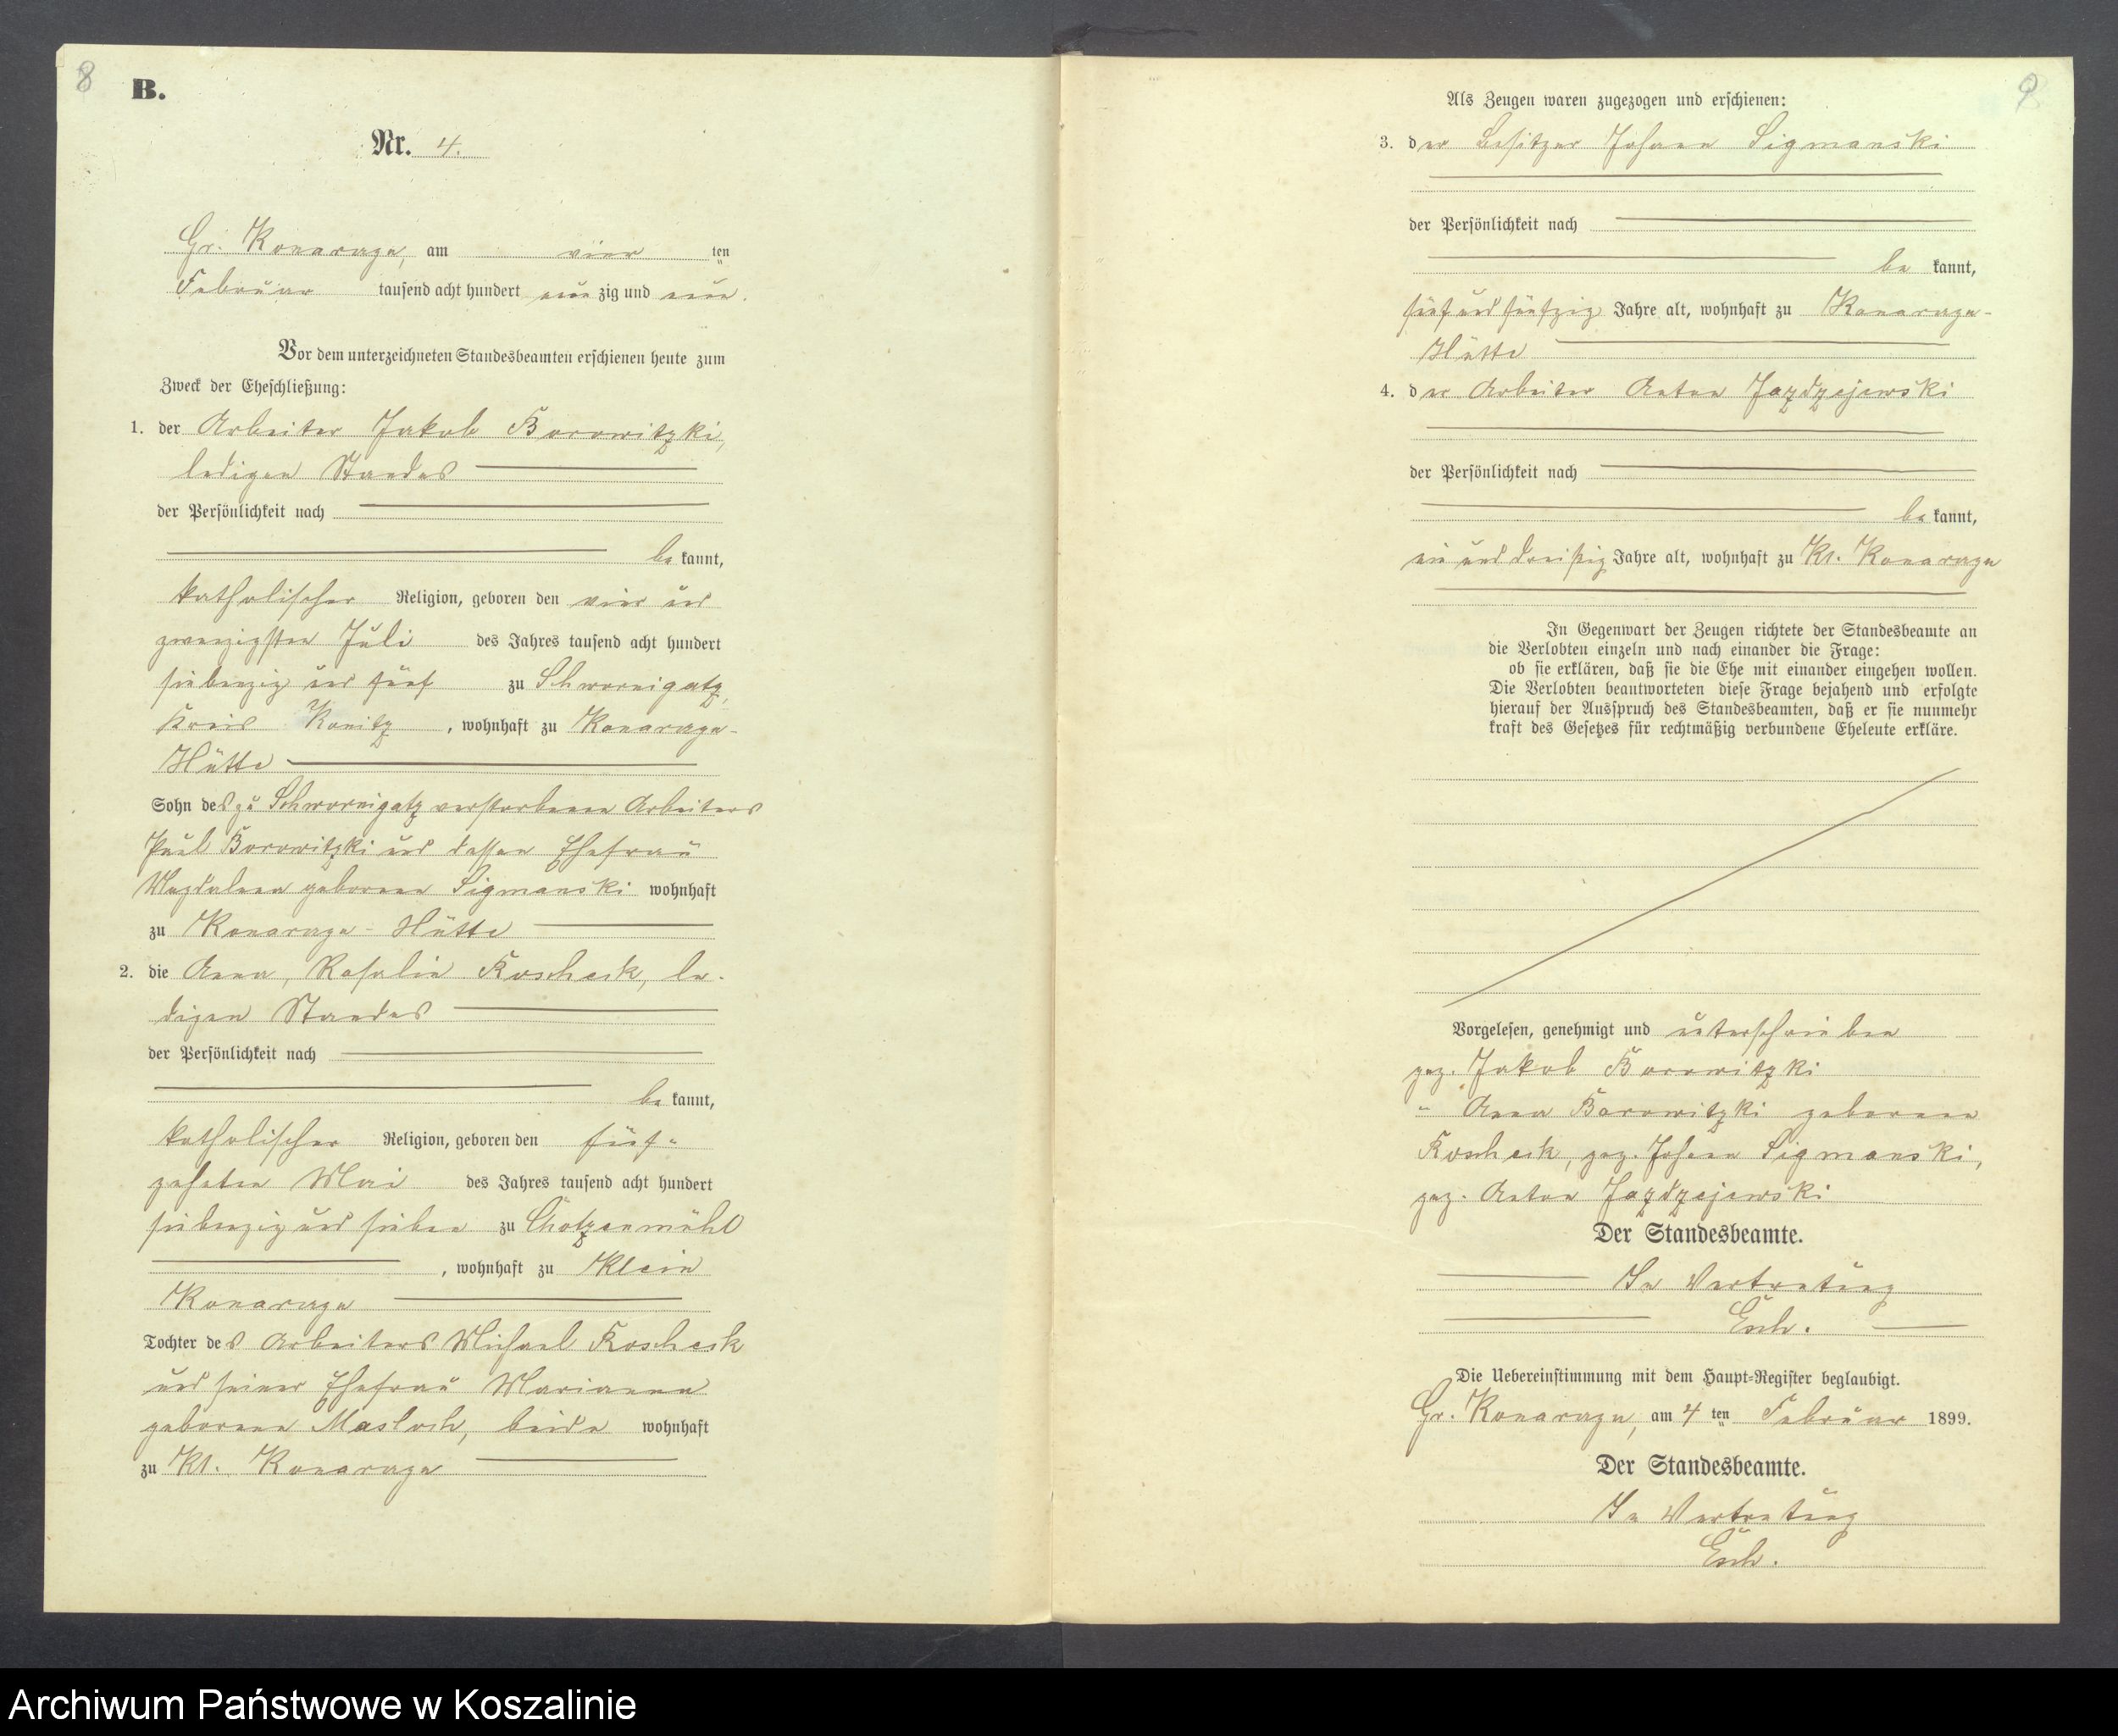 8
B.
Nr. 4.
Gr. Konarczyn, am vier ten
Februar tausend acht hundert neun zig und neun.
Vor dem unterzeichneten Standesbeamten erschienen heute zum
Zweck der Eheschließung:
1. der Arbeiter Jakob Borowitzki,
ledigen Standes
der Persönlichkeit nach
be kannt,
katholischer Religion, geboren den vier und
zwanzigsten Juli des Jahres tausend acht hundert
siebenzig und fünf zu Schwornigatz,
Kreis Konitz, wohnhaft zu Konarczyn-
Hütte
Sohn des zu Schwornigatz verstorbenen Arbeiters
Paul Borowitzki und dessen Ehefrau
Magdalena geborene Sigmanski wohnhaft
zu Konarczyn-Hütte
2. die Anna, Rosalie Koscheck, le-
digen Standes
der Persönlichkeit nach
be kannt,
katholischer Religion, geboren den fünf-
zehnten Mai des Jahres tausend acht hundert
siebenzig und sieben zu Chotzenmühl
, wohnhaft zu Klein
Konarczyn
Tochter des Arbeiters Michael Koscheck
und seiner Ehefrau Marianna
geborene Masloch, beide wohnhaft
zu Kl. Konarczyn
9
Als Zeugen waren zugezogen und erschienen:
3. der Besitzer Johann Sigmanski
der Persönlichkeit nach
be kannt,
fünf und fünfzig Jahre alt, wohnhaft zu Konarczyn-
Hütte
4. der Arbeiter Anton Jazdzejewski
der Persönlichkeit nach
be kannt,
ein und dreißig Jahre alt, wohnhaft zu Kl. Konarczyn
In Gegenwart der Zeugen richtete der Standesbeamte an
die Verlobten einzeln und nach einander die Frage:
ob sie erklären, daß sie die Ehe mit einander eingehen wollen.
Die Verlobten beantworteten diese Frage bejahend und erfolgte
hierauf der Ausspruch des Standesbeamten, daß er sie nunmehr
kraft des Gesetzes für rechtmäßig verbundene Eheleute erkläre.
Vorgelesen, genehmigt und unterschrieben
gez. Jakob Borowitzki
" Anna Borowitzki geborene
Koscheck, gez. Johann Sigmanski,
gez. Anton Jazdzejewski
Der Standesbeamte.
In Vertretung
Esch.
Die Uebereinstimmung mit dem Haupt-Register beglaubigt.
Gr. Konarczyn, am 4 ten Februar 1899.
Der Standesbeamte.
In Vertretung
Esch.
Archiwum Państwowe w Koszalinie